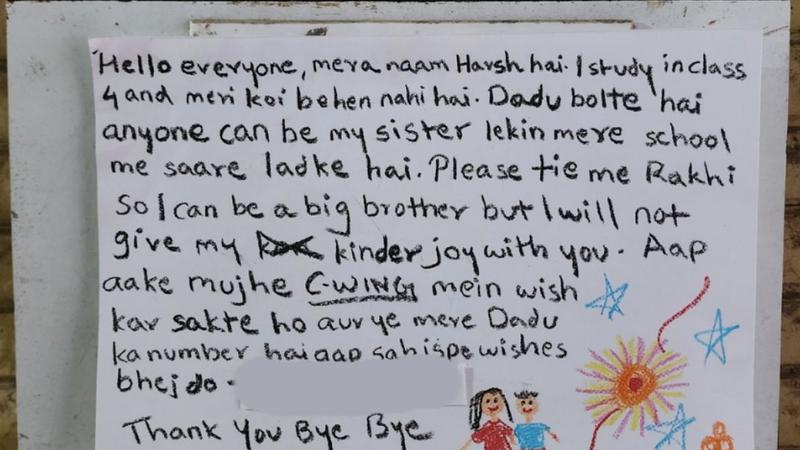 Hello everyone, mera naam Harsh hai. I study in class
4 and meri koi behen nahi hai. Dadu bolte hai
anyone can be my sister lekin mere school
me saare ladke hai. Please tie me Rakhi
So I can be a big brother but I will not
give my kinder joy with you. Aap
aake mujhe C-WING mein wish
kar sakte ho aur ye mere Dadu
ka number hai aap sah ispe wishes
bhej do -
Thank You Bye Bye